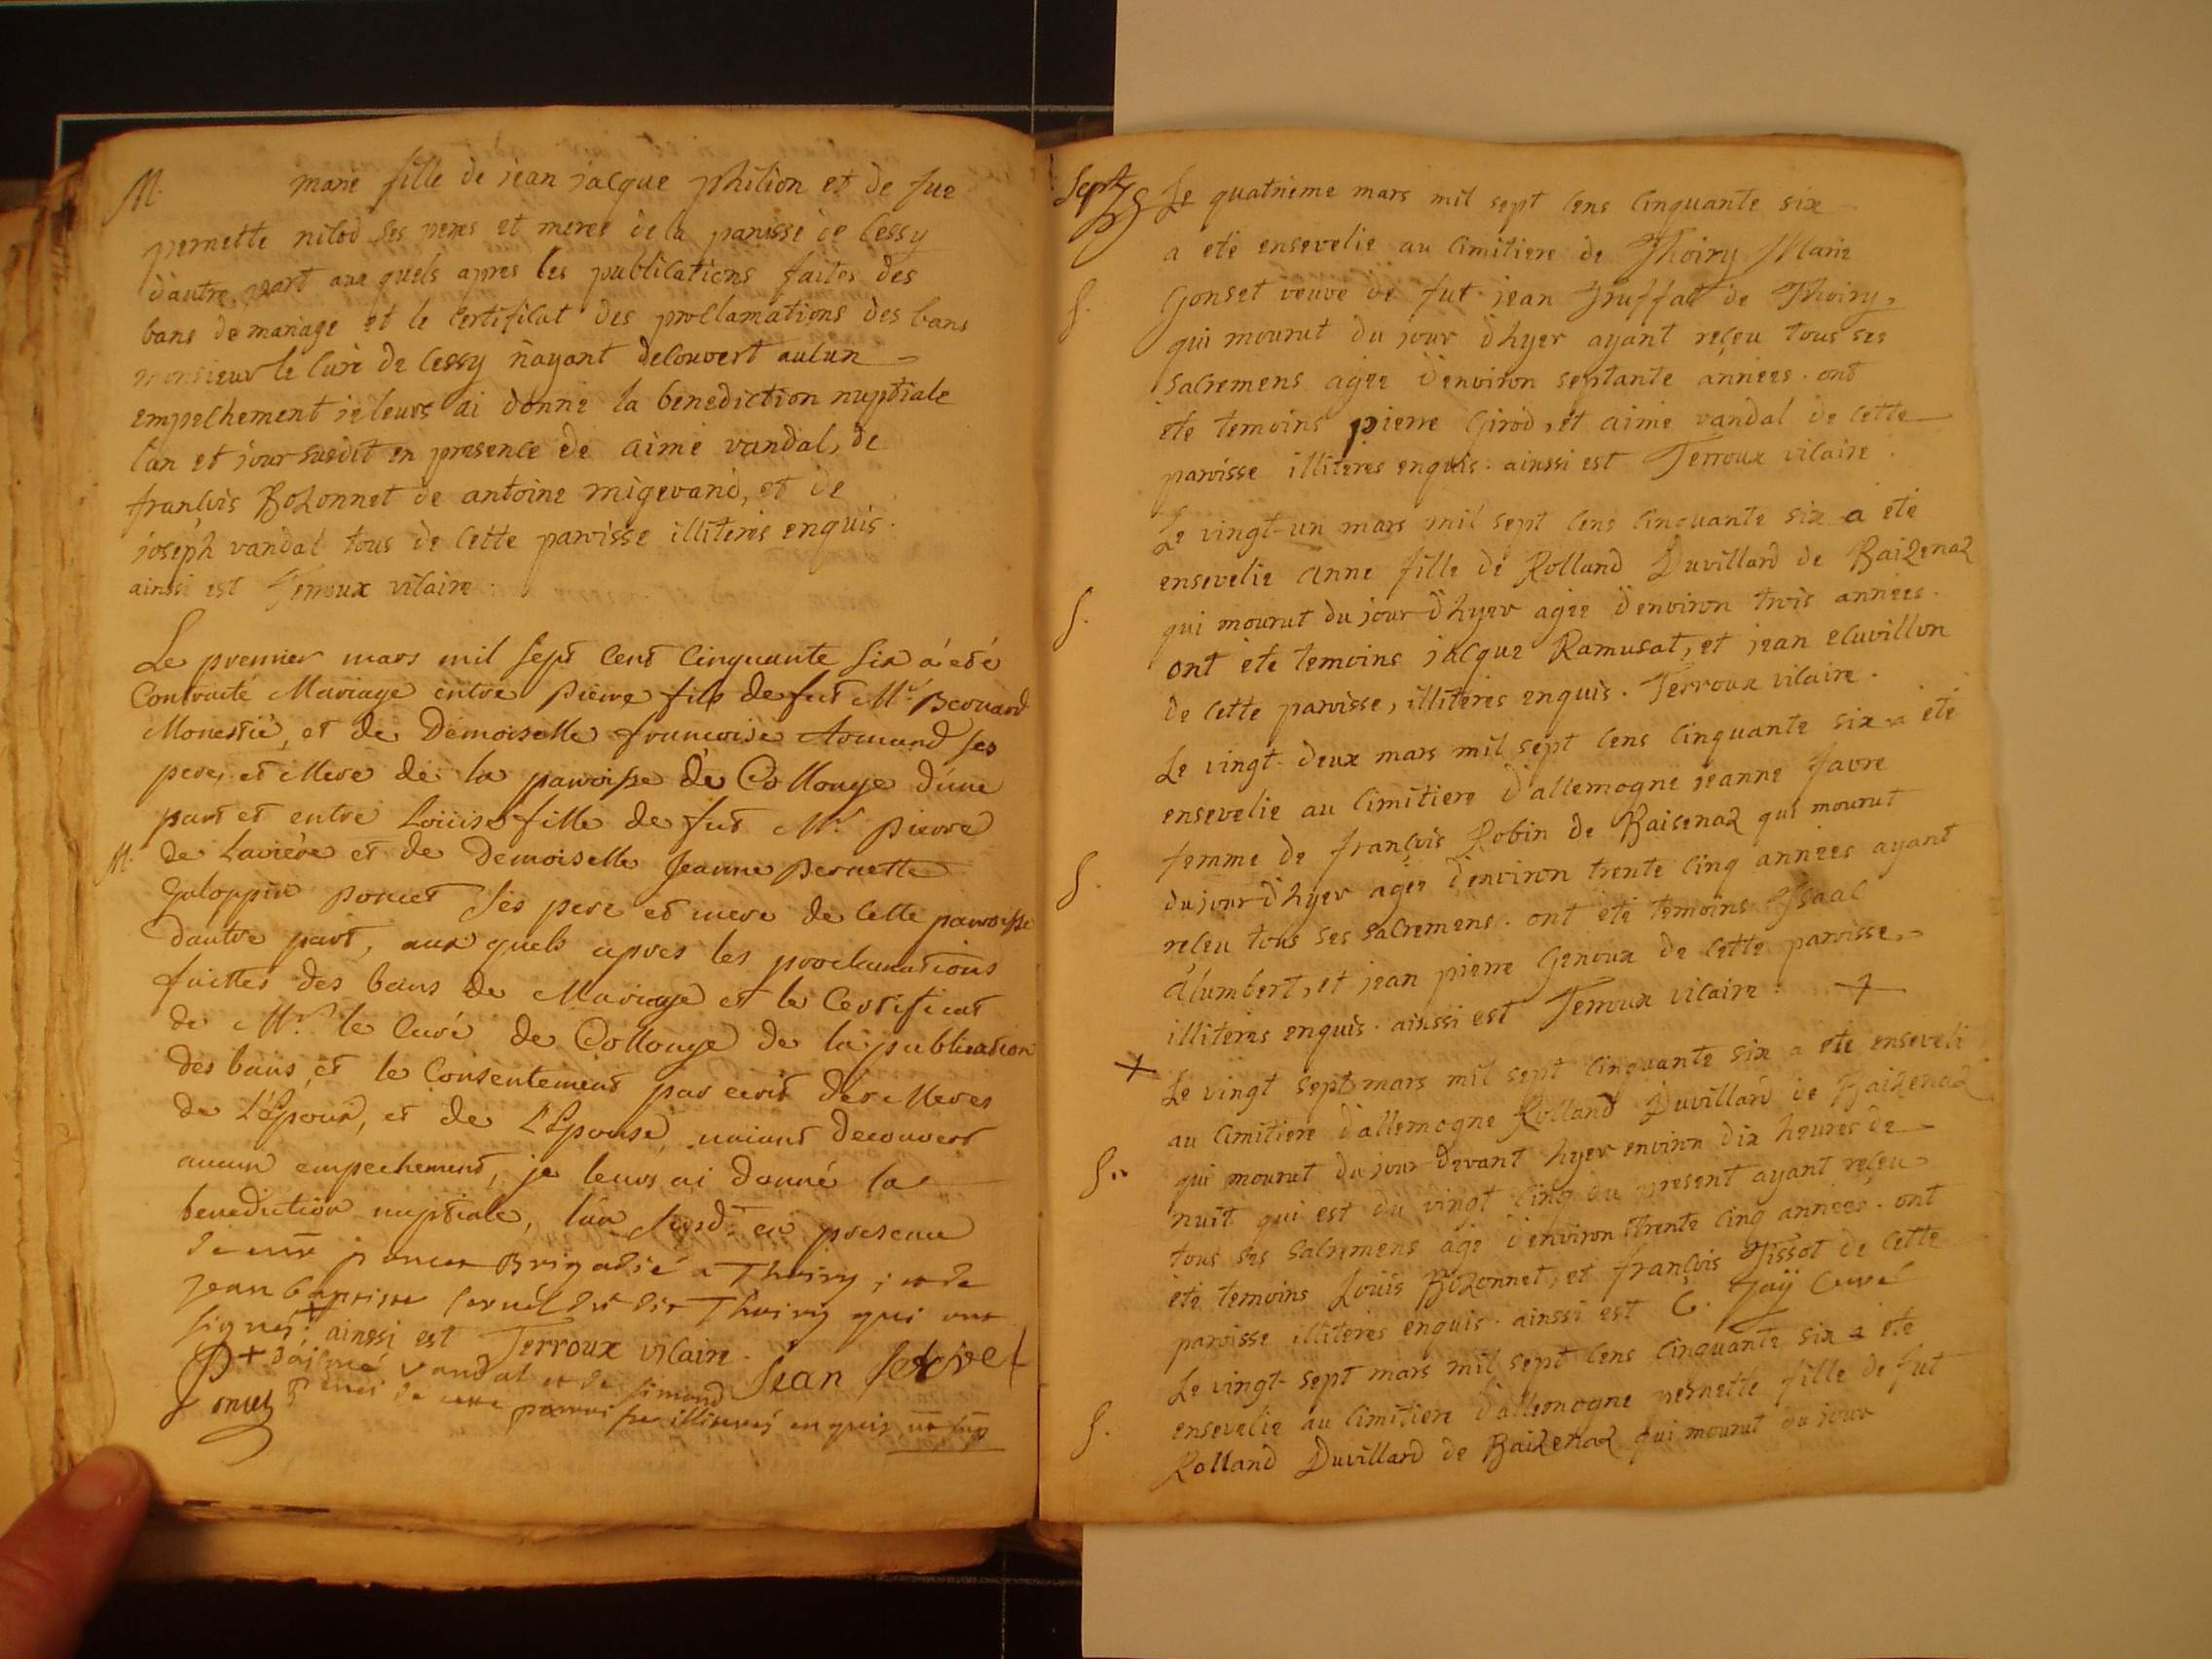 M. marie fille de jean jacque philion et de fue
pernette nilod ses peres et meres de la paroisse de Cessy
d'autre part aux quels apres les publications faites des
bans de mariage et le certificat des proclamations des bans
monsieur le curé de cessy n'ayant decouvert aucun
empechement je leurs ai donné la benediction nuptiale
l'an et jour susdit en presence de aimé vandal, de
françois Bozonnet de antoine migevand, et de
joseph vandal tous de cette paroisse illiterés enquis.
ainssi est Terroux vicaire.
Le premier mars mil sept cent cinquante six a été
Contracté Mariage entre Pierre fils de fut Mr Berouard
Monestié, et de Demoiselle francoise Armand ses
pere, et Mere de la paroisse de Collonge d'une
part et entre Louise fille de fut Mr pierre
M. de Lariére et de Demoiselle Jeanne Pernette
Galoppin Poncet ses pere et mere de cette paroisse
d'autre part, aux quels apres les proclamations
faittes des bans de Mariage et le Certificat
de Mr le Curé de Collonge de la publication
des bans, et le Consentement par ecrit des Meres
de L'Epoux, et de L'Epouse, naiant decouvert
aucun empechement, je leurs ai donné la
benediction nuptiale, l'an susd. en presence
de poncet Brigadié a Thoiry, et de
jean baptiste dudit Thoiry qui ont
signés + ainssi est Terroux vicaire.
+ d'aimé vandal et de simond Jean
Poncet de cette paroisse illiterés enquis
Sept.s Le quatrieme mars mil sept cens cinquante six
a eté ensevelie au cimitiere de Thoiry Marie
S. Gonset veuve de fut jean Truffat de Thoiry,
qui mourut du jour d'hyer ayant reçeu tous ses
sacremens agée d'environ septante années. ont
eté temoins pierre Girod, et aimé vandal de cette
paroisse illiterés enquis. ainssi est Terroux vicaire.
Le vingt-un mars mil sept cens cinquante six a eté
ensevelie anne fille de Rolland Duvillard de Baizenaz
S. qui mourut du jour d'hyer agée d'environ trois années.
ont eté temoins jacque Ramusat, et jean eluvillon
de cette paroisse, illiterés enquis. Terroux vicaire.
Le vingt-deux mars mil sept cens cinquante six a eté
ensevelie au cimitiere d'allemogne jeanne favre
femme de françois Robin de Baisenaz qui mourut
S. du jour d'hyer agée d'environ trente cinq années ayant
reçeu tous ses sacremens. ont eté temoins Isaac
alumbert, et jean pierre Genoux de cette paroisse,
illiterés enquis. ainssi est Terroux vicaire. +
+ Le vingt sept mars mil sept cinquante six a eté enseveli
au cimitiere d'allemogne Rolland Duvillard de Baizenaz
S. qui mourut du jour devant hyer environ dix heures de
nuit qui est du vingt cinq du present ayant reçeu
tous ses sacremens agé d'environ trente cinq années. ont
eté temoins Louis Bozonnet, et françois Tissot de cette
paroisse illiterés enquis. ainssi est C. Jaÿ Curé
Le vingt-sept mars mil sept cens cinquante six a eté
S. ensevelie au cimitiere d'allemogne pernette fille de fut
Rolland Duvillard de Baizenaz qui mourut du jour